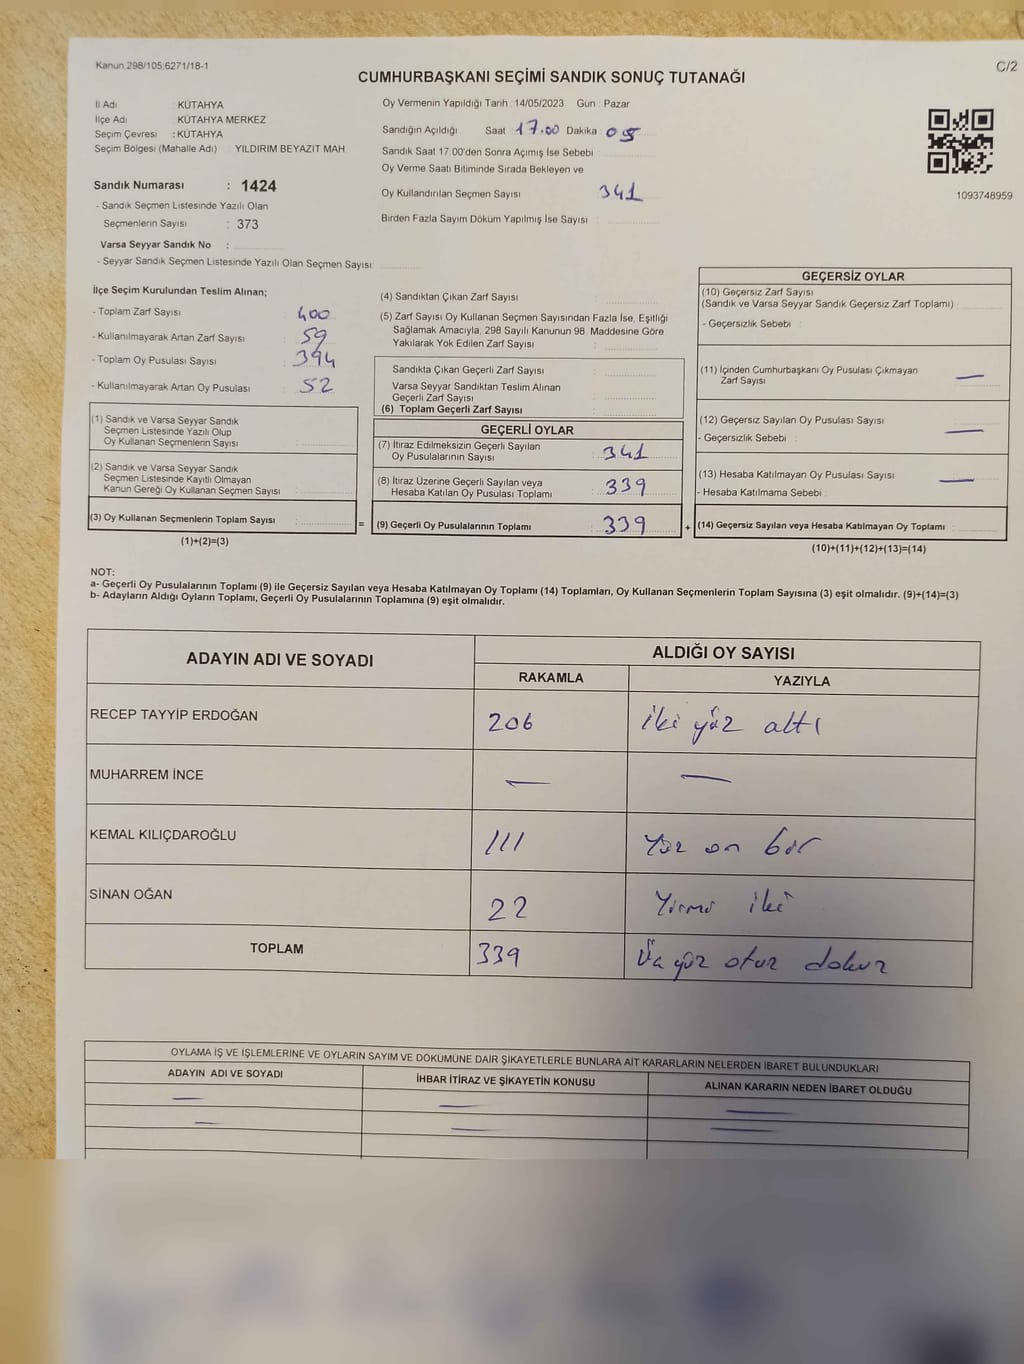 Kanun,298/105,6271/18-1
C/2
CUMHURBAŞKANI SEÇİMİ SANDIK SONUÇ TUTANAĞI
İl Adı : KÜTAHYA
İlçe Adı : KÜTAHYA MERKEZ
Seçim Çevresi : KÜTAHYA
Seçim Bölgesi (Mahalle Adı) : YILDIRIM BEYAZIT MAH.
Sandık Numarası : 1424
- Sandık Seçmen Listesinde Yazılı Olan
Seçmenlerin Sayısı : 373
Varsa Seyyar Sandık No :
- Seyyar Sandık Seçmen Listesinde Yazılı Olan Seçmen Sayısı:
Oy Vermenin Yapıldığı Tarih : 14/05/2023 Gün : Pazar
Sandığın Açıldığı Saat : 17.00 Dakika : 05
Sandık Saat 17.00'den Sonra Açımış İse Sebebi :
Oy Verme Saati Bitiminde Sırada Bekleyen ve
Oy Kullandırılan Seçmen Sayısı : 341
Birden Fazla Sayım Döküm Yapılmış İse Sayısı :
1093748959
İlçe Seçim Kurulundan Teslim Alınan;
- Toplam Zarf Sayısı : 400
- Kullanılmayarak Artan Zarf Sayısı : 59
- Toplam Oy Pusulası Sayısı : 394
- Kullanılmayarak Artan Oy Pusulası : 52
(1) Sandık ve Varsa Seyyar Sandık
Seçmen Listesinde Yazılı Olup
Oy Kullanan Seçmenlerin Sayısı :
(2) Sandık ve Varsa Seyyar Sandık
Seçmen Listesinde Kayıtlı Olmayan
Kanun Gereği Oy Kullanan Seçmen Sayısı :
(3) Oy Kullanan Seçmenlerin Toplam Sayısı :
(1)+(2)=(3)
(4) Sandıktan Çıkan Zarf Sayısı :
(5) Zarf Sayısı Oy Kullanan Seçmen Sayısından Fazla İse, Eşitliği
Sağlamak Amacıyla, 298 Sayılı Kanunun 98. Maddesine Göre
Yakılarak Yok Edilen Zarf Sayısı :
Sandıkta Çıkan Geçerli Zarf Sayısı :
Varsa Seyyar Sandıktan Teslim Alınan
Geçerli Zarf Sayısı :
(6) Toplam Geçerli Zarf Sayısı :
GEÇERLİ OYLAR
(7) İtiraz Edilmeksizin Geçerli Sayılan
Oy Pusulalarının Sayısı : 341
(8) İtiraz Üzerine Geçerli Sayılan veya
Hesaba Katılan Oy Pusulası Toplamı : 339
= (9) Geçerli Oy Pusulalarının Toplamı : 339 +
GEÇERSİZ OYLAR
(10) Geçersiz Zarf Sayısı
(Sandık ve Varsa Seyyar Sandık Geçersiz Zarf Toplamı) :
- Geçersizlik Sebebi :
(11) İçinden Cumhurbaşkanı Oy Pusulası Çıkmayan
Zarf Sayısı : —
(12) Geçersiz Sayılan Oy Pusulası Sayısı : —
- Geçersizlik Sebebi :
(13) Hesaba Katılmayan Oy Pusulası Sayısı : —
- Hesaba Katılmama Sebebi :
(14) Geçersiz Sayılan veya Hesaba Katılmayan Oy Toplamı :
(10)+(11)+(12)+(13)=(14)
NOT:
a- Geçerli Oy Pusulalarının Toplamı (9) ile Geçersiz Sayılan veya Hesaba Katılmayan Oy Toplamı (14) Toplamları, Oy Kullanan Seçmenlerin Toplam Sayısına (3) eşit olmalıdır. (9)+(14)=(3)
b- Adayların Aldığı Oyların Toplamı, Geçerli Oy Pusulalarının Toplamına (9) eşit olmalıdır.
ADAYIN ADI VE SOYADI ALDIĞI OY SAYISI
RAKAMLA YAZIYLA
RECEP TAYYİP ERDOĞAN 206 iki yüz altı
MUHARREM İNCE — —
KEMAL KILIÇDAROĞLU 111 Yüz on bir
SİNAN OĞAN 22 Yirmi iki
TOPLAM 339 Üç yüz otuz dokuz
OYLAMA İŞ VE İŞLEMLERİNE VE OYLARIN SAYIM VE DÖKÜMÜNE DAİR ŞİKAYETLERLE BUNLARA AİT KARARLARIN NELERDEN İBARET BULUNDUKLARI
ADAYIN ADI VE SOYADI İHBAR İTİRAZ VE ŞİKAYETİN KONUSU ALINAN KARARIN NEDEN İBARET OLDUĞU
— — —
— — —